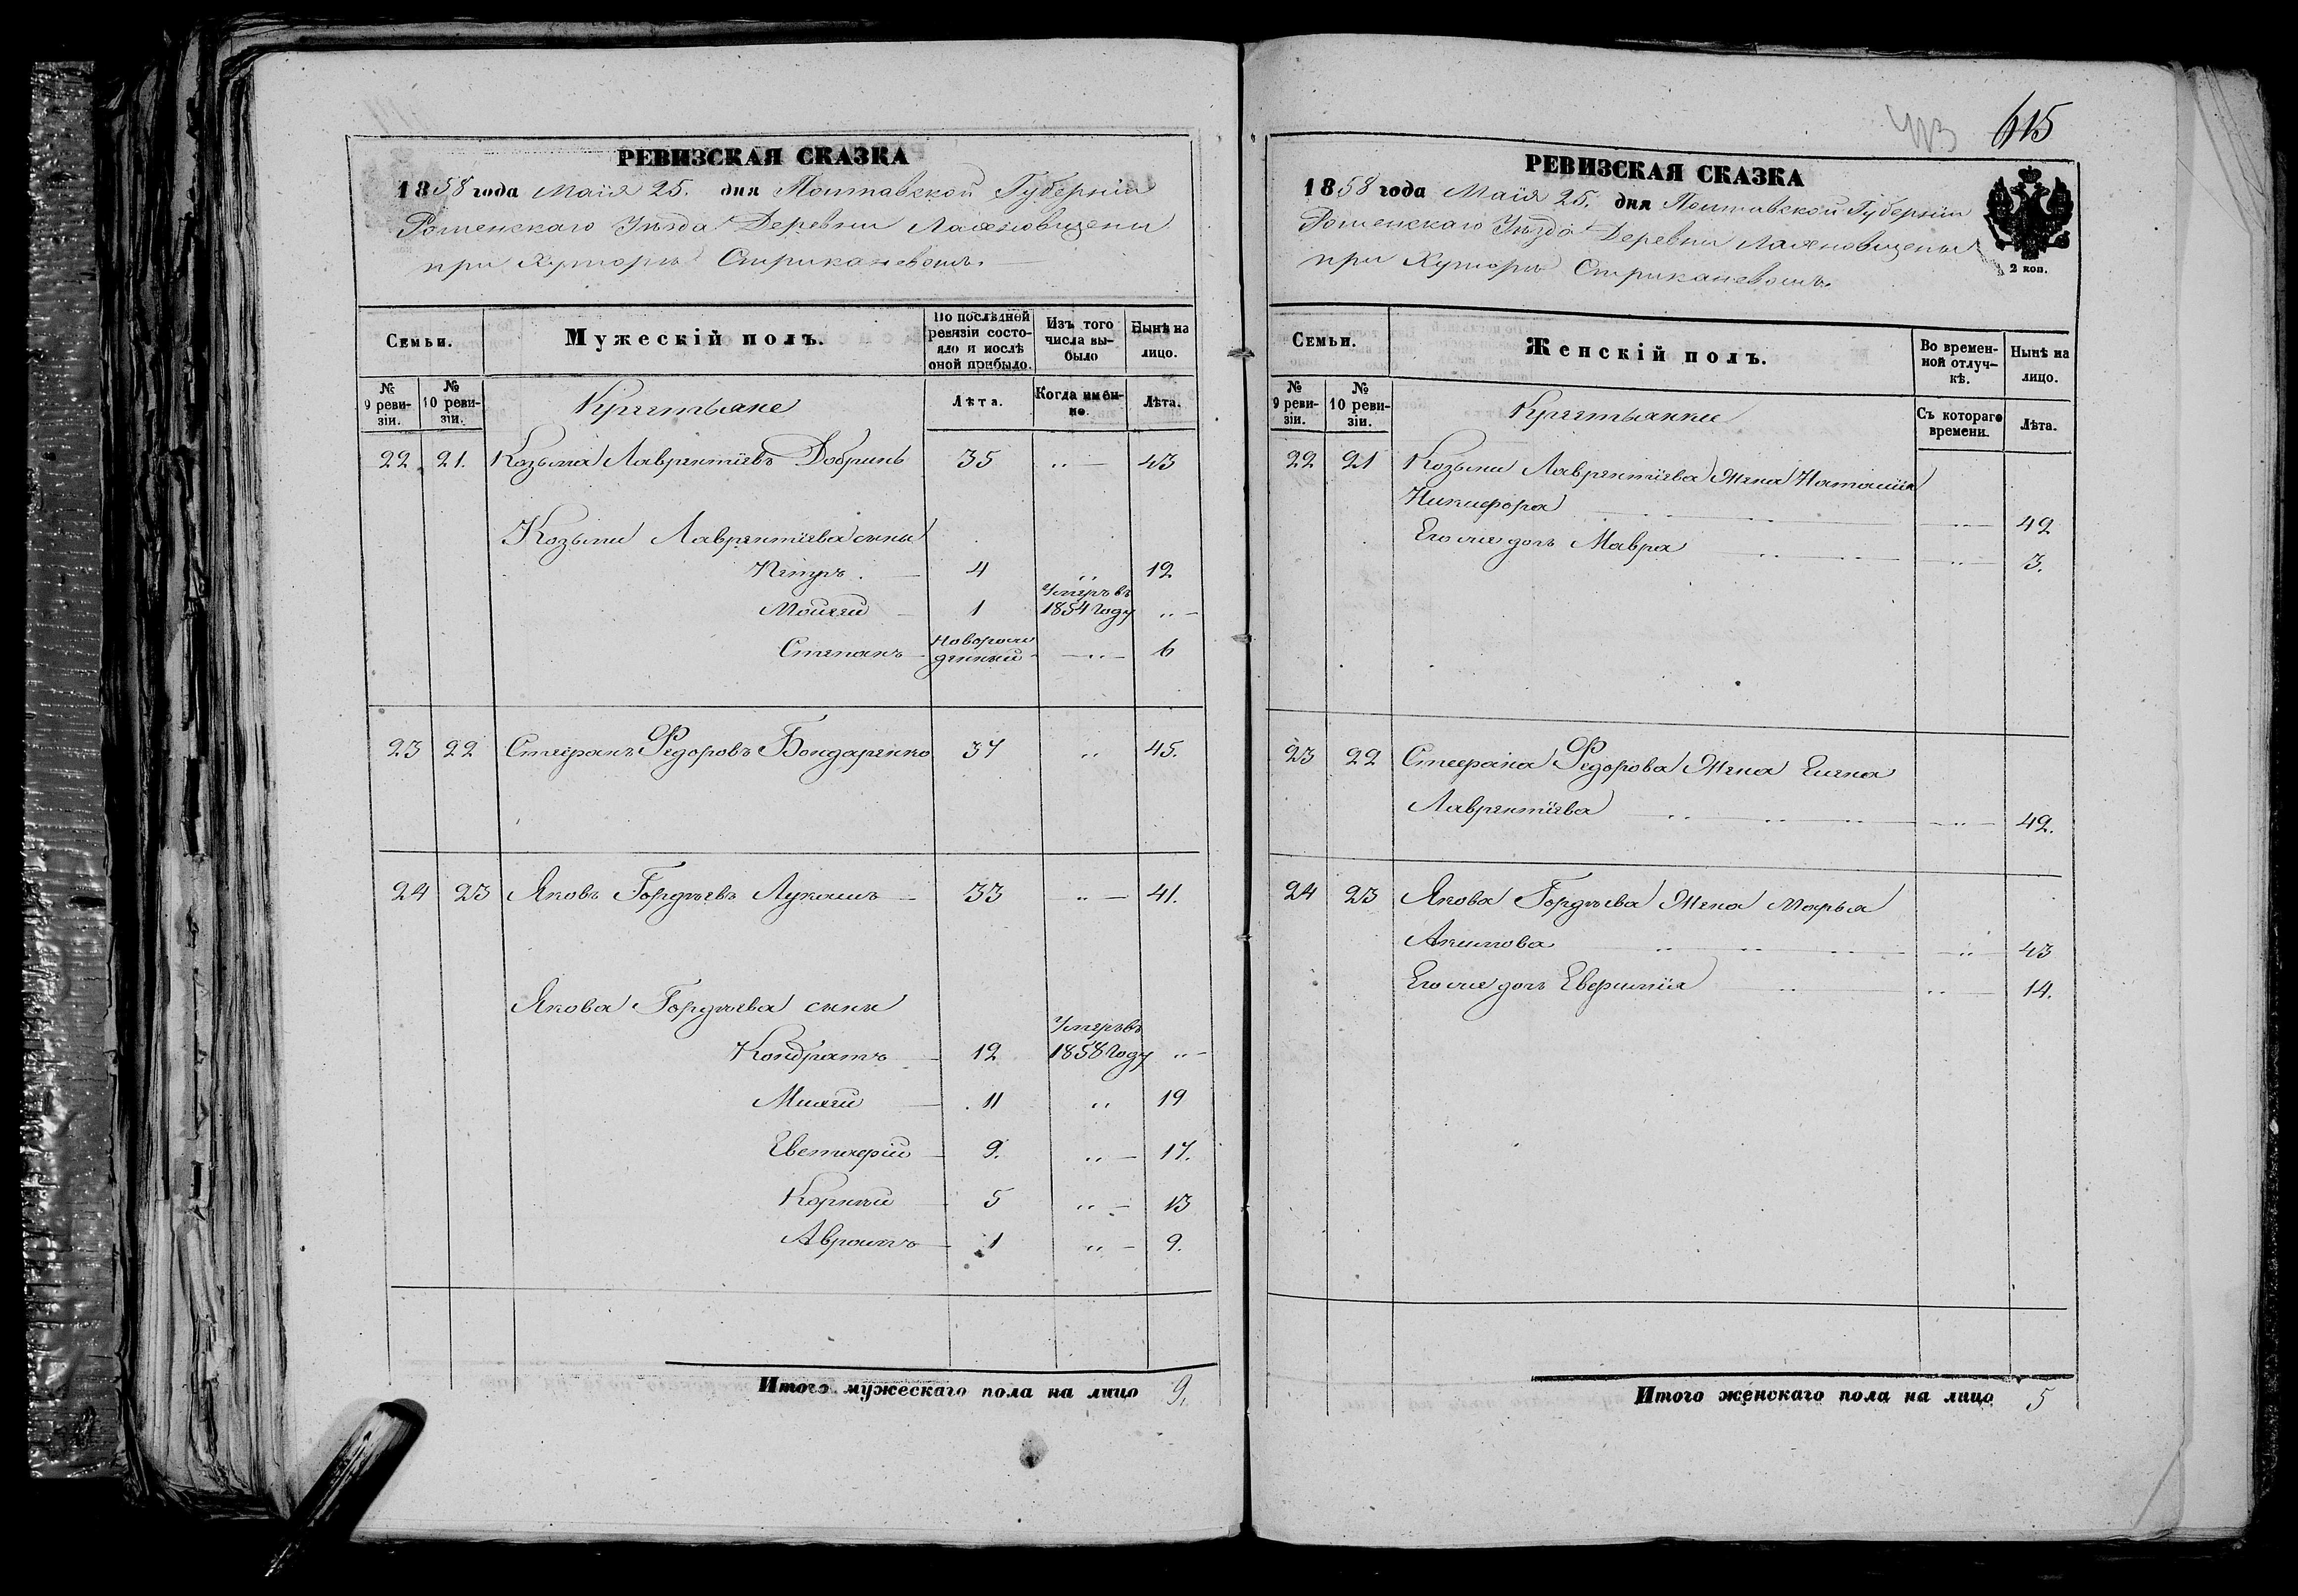 РЕВИЗСКАЯ СКАЗКА
1858 года Маія 25. дня Полтавской Губерніи
Роменскаго Уѣзда Деревни
при Хуторѣ Стрикачевомъ.
Семьи.
Мужескій полъ.
По послѣдней ревизіи состояло и послѣ оной прибыло.
Изъ того числа выбыло
Нынѣ на лицо.
№ 9 ревизіи.
№ 10 ревизіи.
Крестьяне
Лѣта.
Когда именно.
Лѣта.
22 21. Козьма Лаврентіевъ 35 „ 43
Козьмы Лаврентіева сыны
Петръ 4 „ 12
Моисей 1 Умеръ въ 1854 году „
Степанъ новорожденный „ 6
23 22 Стефанъ Федоровъ Бондаренко 37 „ 45.
24 23 Яковъ Гордѣевъ Лукашъ 33 „ 41.
Якова Гордѣева сыны
Кондратъ 12 Умеръ въ 1858 году „
11 „ 19
Евстихій 9. „ 17.
Корній 5 „ 13
Авраамъ 1 „ 9.
Итого мужескаго пола на лицо 9.
615
РЕВИЗСКАЯ СКАЗКА
2 коп.
1858 года Маія 25. дня Полтавской Губерніи
Роменскаго Уѣзда Деревни
при Хуторѣ Стрикачевомъ.
Семьи.
Женскій полъ.
Во временной отлучкѣ.
Нынѣ на лицо.
№ 9 ревизіи.
№ 10 ревизіи.
Крестьянки
Съ котораго времени.
Лѣта.
22 21 Козьмы Лаврентіева жена Наталія
Никифора „ 42
Его же дочь Мавра „ 3.
23 22 Стефана Федорова жена Елена
Лаврентіева „ 42.
24 23 Якова Гордѣева жена Марья
Акимова „ 43
Его же дочь Евфимія „ 14.
Итого женскаго пола на лицо 5